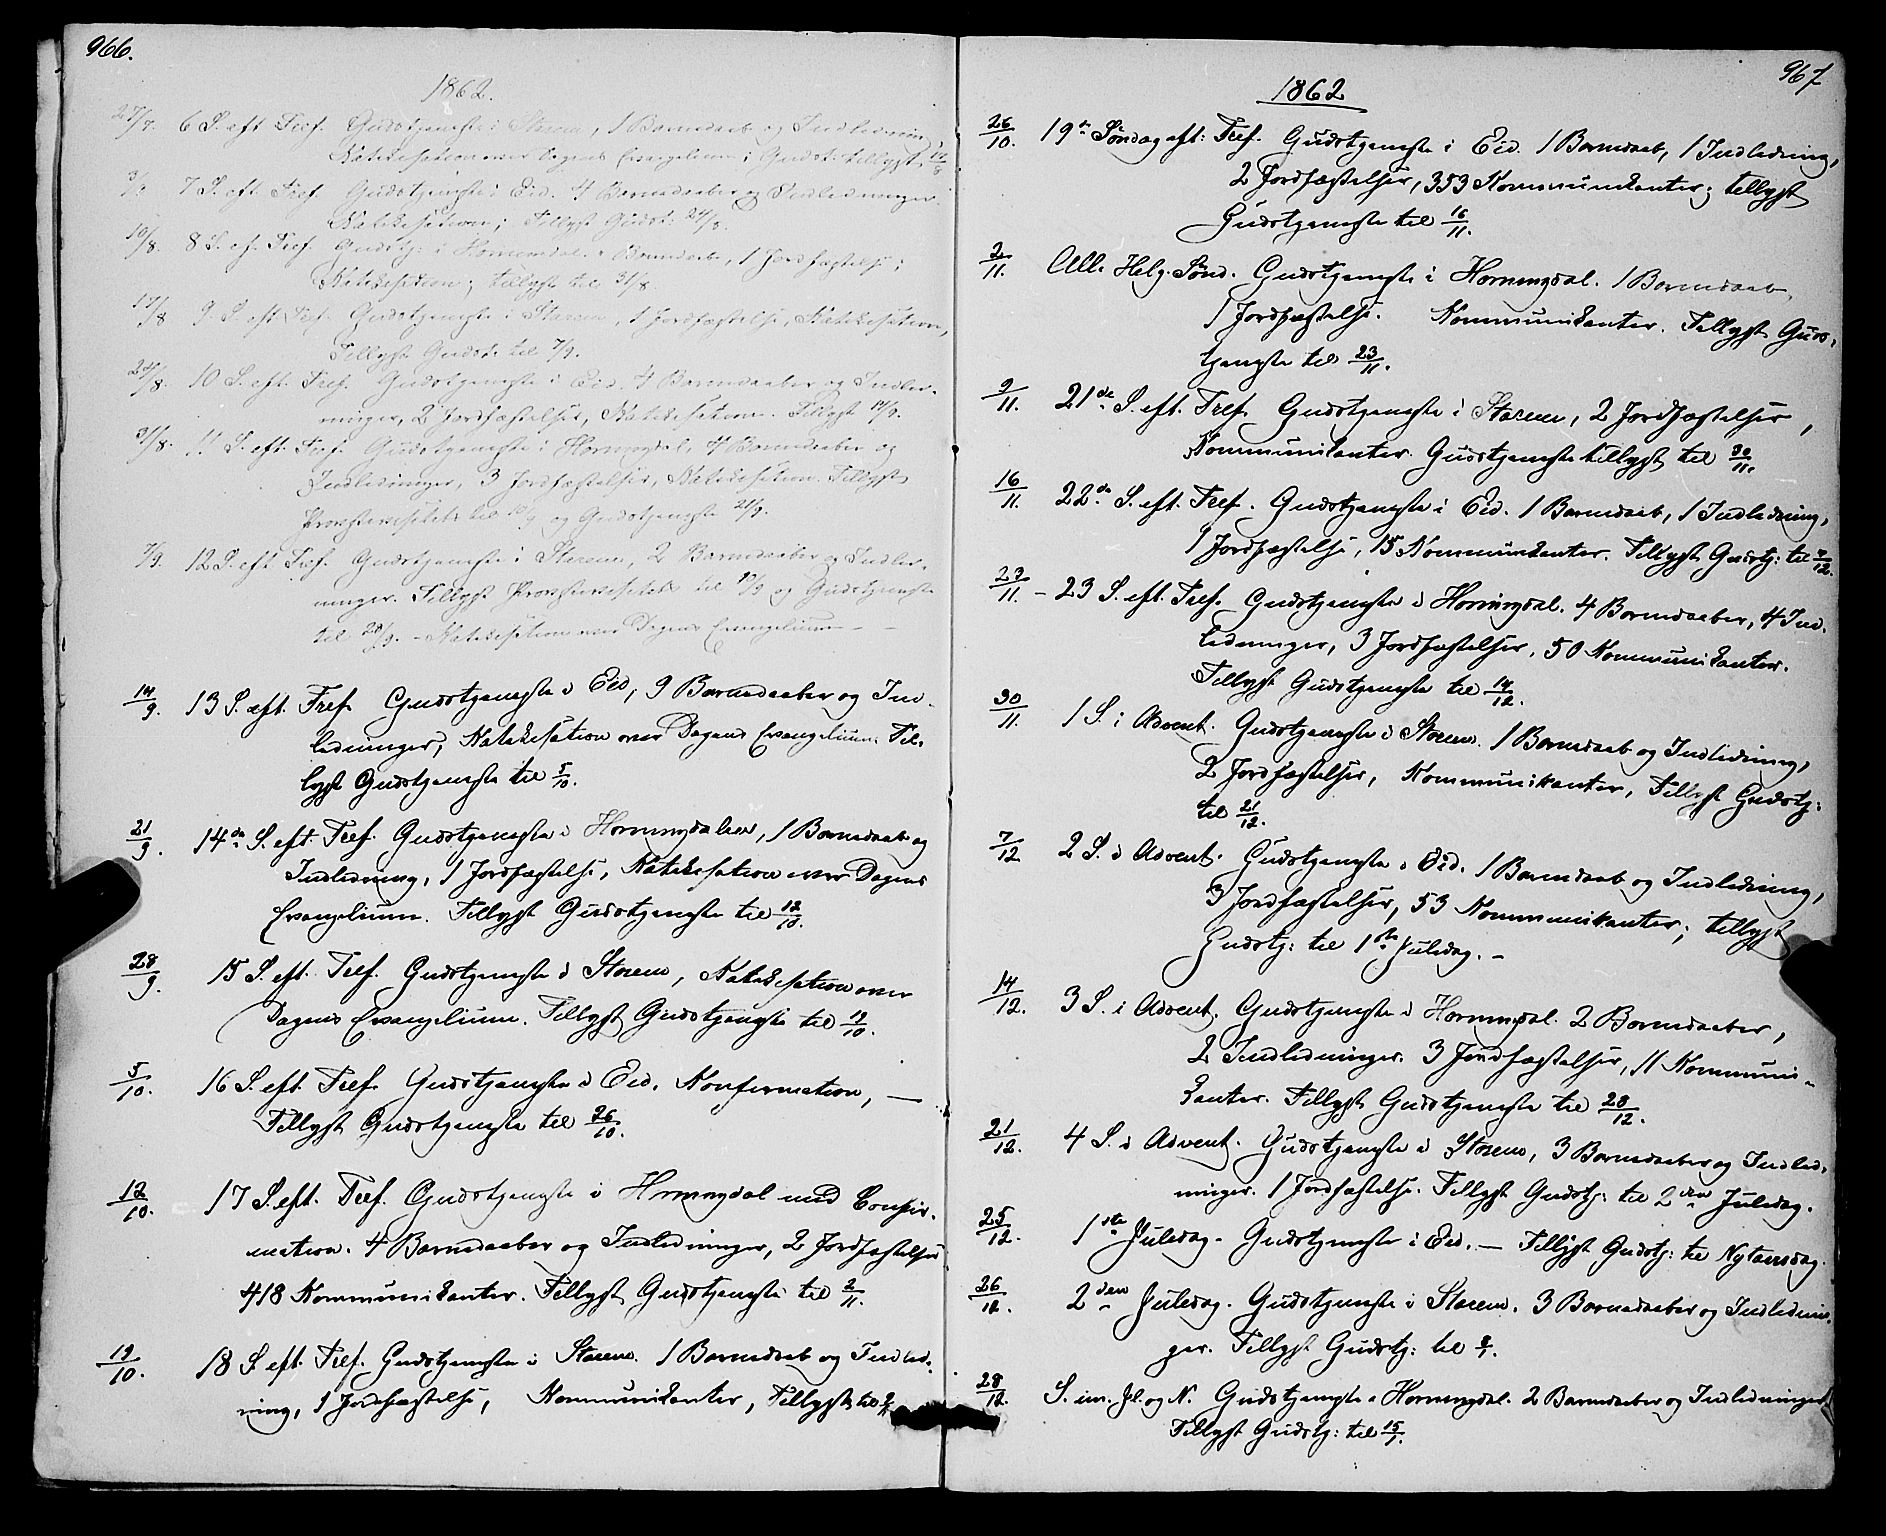 966.
1862.
27/7. 6 S. eft Tref. Gudstjeneste i Starem, 1 Barnedaab og Indledning,
Katekisation over Dagens Evangelium; Gudst. tillyst 17/8
3/8 7 S. eft Tref. Gudstjeneste i Eid. 4 Barnedaaber og Indledninger.
Katekisation; Tillyst Gudst. 24/8.
10/8. 8 S. ef. Tref. Gudstj: i Hornindal. Barndaab, 1 Jordfæstelse;
Katekisation; tillyst til 31/8.
17/8 9 S. eft Tref. Gudstjeneste i Starem, 1 Jordfæstelse, Katekisation,
Tillyst Gudst. til 7/9.
24/8. 10 S. eft. Tref. Gudstjeneste i Eid. 4 Barnedaaber og Indled-
ninger, 2 Jordfæstelser, Katekisation. Tillyst 14/9.
31/8. 11 S. eft. Tref. Gudstjeneste i Horningdal, 4 Barnedaaber og
Indledninger, 3 Jordfæstelser, Katekisation. Tillyst
Provstevisitats til 18/9 og Gudstjeneste 21/9.
7/9. 12 S. eft Tref. Gudstjeneste i Starem, 2 Barnedaaber og Indled-
ninger. Tillyst Provstevisitats til 19/9 og Gudstjeneste
til 28/9. - Katekisation over Dagens Evangelium - -
14/9. 13 S. eft. Tref. Gudstjeneste i Eid, 9 Barnedaaber og Ind-
ledninger, Katekisation over Dagens Evangelium. Til-
lyst Gudstjeneste til 5/10.
21/9. 14de S. eft. Tref. Gudstjeneste i Horningdalen, 1 Barnedaab og
Indledning, 1 Jordfæstelse, Katekisation over Dagens
Evangelium. Tillyst Gudstjeneste til 12/10.
28/9. 15 S. eft. Tref. Gudstjeneste i Starem, Katekisation over
Dagens Evangelium. Tillyst Gudstjeneste til 19/10.
5/10. 16 S. eft. Tref. Gudstjeneste i Eid. Konfirmation, —
Tillyst Gudstjeneste til 26/10.
12/10. 17 S. eft. Tref. Gudstjeneste i Horningdal med Confir-
mation. 4 Barnedaaber og Indledninger, 2 Jordfæstelser
418 Kommunikanter. Tillyst Gudstjeneste til 2/11.
19/10. 18 S. eft. Tref. Gudstjeneste i Starem. 1 Barnedaab og Indled-
ning, 1 Jordfæstelse, Kommunikanter, Tillyst til
967
1862
26/10. 19de Søndag eft: Tref. Gudstjeneste i Eid. 1 Barnedaab, 1 Indledning,
2 Jordfæstelser, 353 Kommunikanter; tillyst
Gudstjeneste til 16/11.
2/11. Alle Helg. Sønd. Gudstjeneste i Horningdal. 1 Barnedaab,
1 Jordfæstelse. Kommunikanter. Tillyst Guds-
tjeneste til 23/11.
9/11. 21de S. eft. Tref. Gudstjeneste i Starem, 2 Jordfæstelser,
Kommunikanter. Gudstjeneste tillyst til 30/11.
16/11. 22de S. eft. Tref. Gudstjeneste i Eid. 1 Barnedaab, 1 Indledning,
1 Jordfæstelse, 15 Kommunikanter. Tillyst Gudstj: til 7/12.
23/11. - 23 S. eft. Tref. Gudstjeneste i Horningdal. 4 Barnedaaber, 4 Ind-
ledninger, 3 Jordfæstelser, 50 Kommunikanter.
Tillyst Gudstjeneste til 14/12.
30/11. 1 S. i Advent. Gudstjeneste i Starem. 1 Barnedaab og Indledning,
2 Jordfæstelser, Kommunikanter, Tillyst Gudstj:
til 21/12.
7/12. 2 S. i Advent. Gudstjeneste i Eid. 1 Barnedaab og Indledning,
3 Jordfæstelser, 53 Kommunikanter; tillyst
Gudstj: til 1ste Juledag. -
14/12. 3 S. i Advent. Gudstjeneste i Horningdal. 2 Barnedaaber,
2 Indledninger. 3 Jordfæstelser, 11 Kommuni-
kanter. Tillyst Gudstjeneste til 28/12.
21/12. 4 S. i Advent. Gudstjeneste i Starem, 3 Barnedaaber og Indled-
ninger. 1 Jordfæstelse. Tillyst Gudstj: til 2den Juledag.
25/12. 1ste Juledag. Gudstjeneste i Eid. — Tillyst Gudstj: til Nytaarsdag.
26/12. 2den Juledag. Gudstjeneste i Starem. 3 Barnedaaber og Indlednin-
ger. Tillyst Gudstj: til
28/12. S. im. Jl. og N. Gudstjeneste i Horningdal. 2 Barnedaaber og Indledninger.
Tillyst Gudstj: til 15/1.